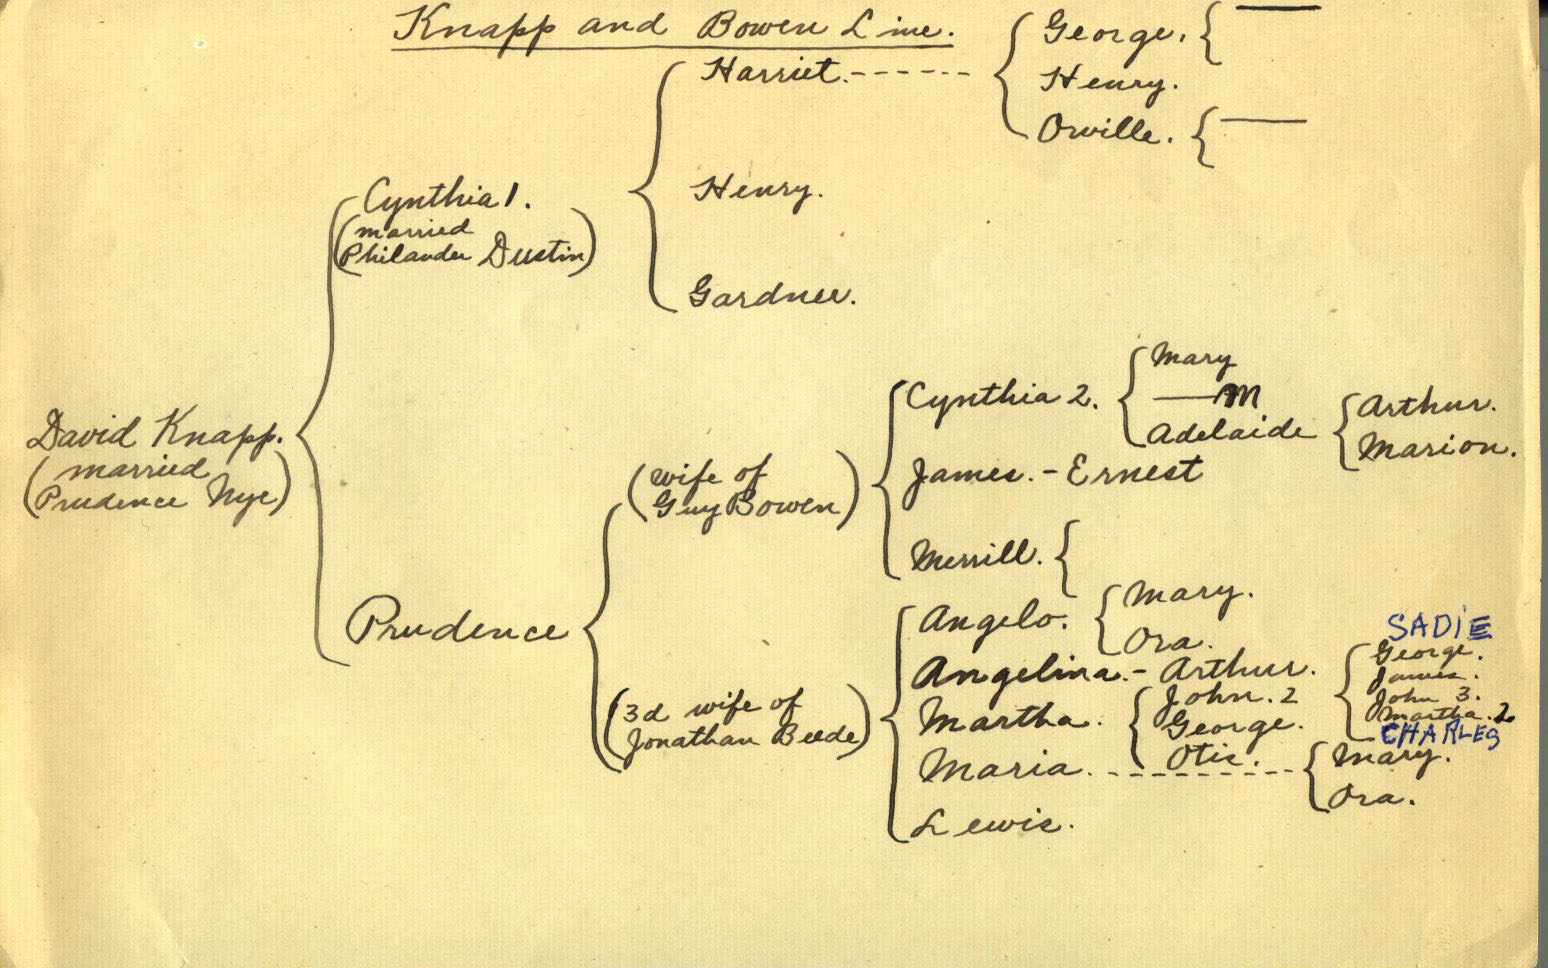 Knapp and Bowen Line.
George.
Harriet.
Henry.
Orville.
Cynthia 1.
(married
Philander Dustin)
Henry.
Gardner.
Mary
Cynthia 2.
M
Adelaide
Arthur.
Marion.
David Knapp.
(married
Prudence Nye)
(wife of
Guy Bowen)
James. - Ernest
Merrill.
Prudence
Angelo.
Mary.
Ora.
Angelina. - Arthur.
(3d wife of
Jonathan Beede)
Martha.
John. 2
George.
Otis.
SADIE
George.
James.
John 3.
Martha. 2.
CHARLES
Maria.
Mary.
Ora.
Lewis.